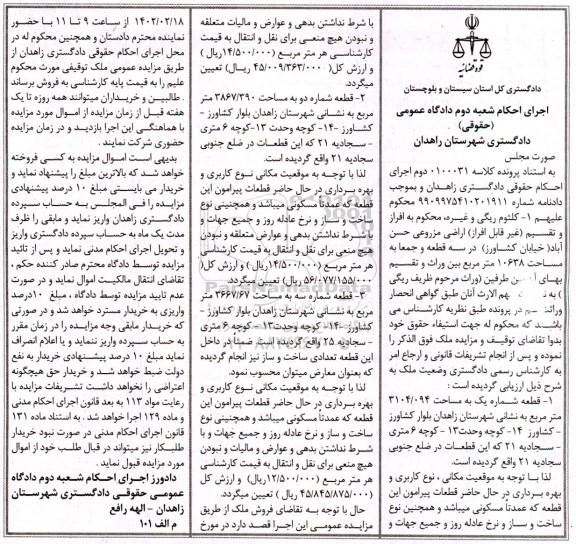 قوه قضائیه
دادگستری کل استان سیستان و بلوچستان
اجرای احکام شعبه دوم دادگاه عمومی
(حقوقی)
دادگستری شهرستان زاهدان
صورت مجلس
به استناد پرونده کلاسه ۰۱۰۰۰۳۱ دوم اجرای
احکام حقوقی دادگستری زاهدان و بموجب
دادنامه شماره ۹۹۰۹۹۷۵۴۱۰۲۰۱۹۱۱ محکوم
علیهم ۱- کلثوم ریگی و غیره، محکوم به افراز
و تقسیم (غیر قابل افراز) اراضی مزروعی حسن
آباد( خیابان کشاورز) در سه قطعه و جمعا به
مساحت ۱۰۶۳۸ متر مربع بین وراث و تقسیم
بهای آن بین طرفین (وراث مرحوم ظریف ریگی
) به هم الارث آنان طبق گواهی انحصار
وراثت در پرونده طبق نظریه کارشناس می
باشند که محکوم له جهت استیفاء حقوق خود
بدوا تقاضای توقیف و مزایده ملک فوق الذکر را
نموده و پس از انجام تشریفات قانونی و ارجاع امر
به کارشناس رسمی دادگستری وضعیت ملک به
شرح ذیل ارزیابی گردیده است :
۱- قطعه شماره یک به مساحت ۳۱۰۴/۰۹۴
متر مربع به نشانی شهرستان زاهدان بلوار کشاورز
- کشاورز ۱۴- کوچه وحدت۱۳ - کوچه ۶ متری
- سجادیه ۲۱ که این قطعات در ضلع جنوبی
سجادیه ۲۱ واقع گردیده است.
لذا با توجه به موقعیت مکانی ، نوع کاربری و
بهره برداری در حال حاضر قطعات پیرامون این
قطعه که عمدتاً مسکونی میباشد و همچنین نوع
ساخت و ساز و نرخ عادله روز و جمیع جهات و
با شرط نداشتن بدهی و عوارض و مالیات متعلقه
و نبودن هیچ منعی برای نقل و انتقال به قیمت
کارشناسی هر متر مربع (۱۴/۵۰۰/۰۰۰ریال)
و ارزش کل( ۴۵/۰۰۹/۳۶۳/۰۰۰ ریال) تعیین
میگردد.
۲- قطعه شماره دو به مساحت ۳۸۶۷/۳۹۰ متر
مربع به نشانی شهرستان زاهدان بلوار کشاورز
- کشاورز ۱۴- کوچه وحدت ۱۳- کوچه ۶ متری
- سجادیه ۲۱ که این قطعات در ضلع جنوبی
سجادیه ۲۱ واقع گردیده است.
لذا با توجه به موقعیت مکانی نوع کاربری و
بهره برداری در حال حاضر قطعات پیرامون این
قطعه که عمدتا مسکونی میباشد و همچنینی نوع
ساخت و ساز و نرخ عادله روز و جمیع جهات و
با شرط نداشتن بدهی و عوارض متعلقه و نبودن
هیچ منعی برای نقل و انتقال به قیمت کارشناسی
هر متر مربع (۱۴/۵۰۰/۰۰۰ریال ) و ارزش کل(
۵۶/۰۷۷/۱۵۵/۰۰۰ریال ) تعیین میگردد.
۳- قطعه شماره سه به مساحت ۳۶۶۷/۶۷ متر
مربع به نشانی شهرستان زاهدان بلوار کشاورز
کشاورز ۱۴- کوچه وحدت۱۳- کوچه ۶ متری
- سجادیه ۲۵ واقع گردیده است ضمناً در داخل
این قطعه تعدادی ساخت و ساز نیز انجام گردیده
که بعنوان معارض میتوان محسوب نمود.
لذا با توجه به موقعیت مکانی نوع کاربری و
بهره برداری در حال حاضر قطعات پیرامون این
قطعه که عمدتاً مسکونی میباشد و همچنینی نوع
ساخت و ساز و نرخ عادله روز و جمیع جهات و با
شرط نداشتن بدهی و عوارض و مالیات و نبودن
هیچ منعی برای نقل و انتقال به قیمت کارشناسی
هر متر مربع (۱۲/۵۰۰/۰۰۰ریال) و ارزش کل
(۴۵/۸۴۵/۸۷۵/۰۰۰ ریال ) تعیین میگردد.
حال با توجه به تقاضای فروش ملک از طریق
مزایده عمومی این اجرا قصد دارد در مورخ
۱۴۰۲/۰۲/۱۸ از ساعت ۹ تا ۱۱ با حضور
نماینده محترم دادستان و همچنین محکوم له در
محل اجرای احکام حقوقی دادگستری زاهدان از
طریق مزایده عمومی ملک توقیفی مورث محکوم
علیم را به قیمت پایه کارشناسی به فروش برساند
. طالبین و خریداران میتوانند همه روزه تا یک
هفته قبل از زمان مزایده از اموال مورد مزایده
با هماهنگی این اجرا بازدید و در زمان مزایده
حضوری شرکت نمایند .
بدیهی است اموال مزایده به کسی فروخته
خواهد شد که بالاترین مبلغ را پیشنهاد نماید و
خریدار می بایستی مبلغ ۱۰ درصد پیشنهادی
مزایده را فی المجلس به حساب سپرده
دادگستری زاهدان واریز نماید و مابقی را ظرف
مدت یک ماه به حساب سپرده دادگستری واریز
و تحویل اجرای احکام مدنی نماید و پس از تائید
مزایده توسط دادگاه محترم صادر کننده حکم ،
تقاضای انتقال مالکیت اموال نماید و در صورت
عدم تایید مزایده توسط دادگاه ، مبلغ ۱۰درصد
واریزی به خریدار مسترد خواهد شد و در صورتی
که خریدار مابقی وجه مزایده را در زمان مقرر
به حساب سپرده واریز ننماید و یا اعلام انصراف
نماید مبلغ ۱۰ درصد پیشنهادی خریدار به نفع
دولت ضبط خواهد شد و خریدار حق هیچگونه
اعتراضی را نخواهد داشت تشریفات مزایده با
رعایت مواد ۱۱۳ به بعد قانون اجرای احکام مدنی
و ماده ۱۲۹ اجرا خواهد شد . به استناد ماده ۱۳۱
قانون اجرای احکام مدنی در صورت نبود خریدار
طلبکار نیز میتواند در قبال طلب خود از اموال
مورد مزایده قبول نماید .
دادورز اجرای احکام شعبه دوم دادگاه
عمومی حقوقی دادگستری شهرستان
زاهدان - الهه رافع
م الف ۱۰۱